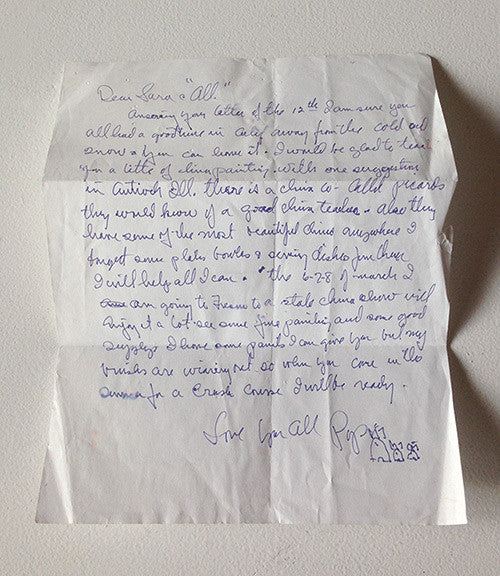 Dear Sara & "All"
Answering your letter of the 12th I am sure you
all had a good time in Calif away from the cold and
snow & you can have it. I would be glad to teach
you a little of china painting. With one suggestion
in Antioch Ill. there is a china co- called Picards
they would know of a good china teacher. Also they
have some of the most beautiful china anywhere I
bought some plates bowles & serving dishes from them
I will help all I can. the 6-7-8 of march I
am going to Fresno to a state china show will
enjoy it a lot - see some fine painting and some good
supplys I have some paints I can give you but my
brushes are wearing out so when you come in the
summer for a crash course I will be ready.
Love you all Pop